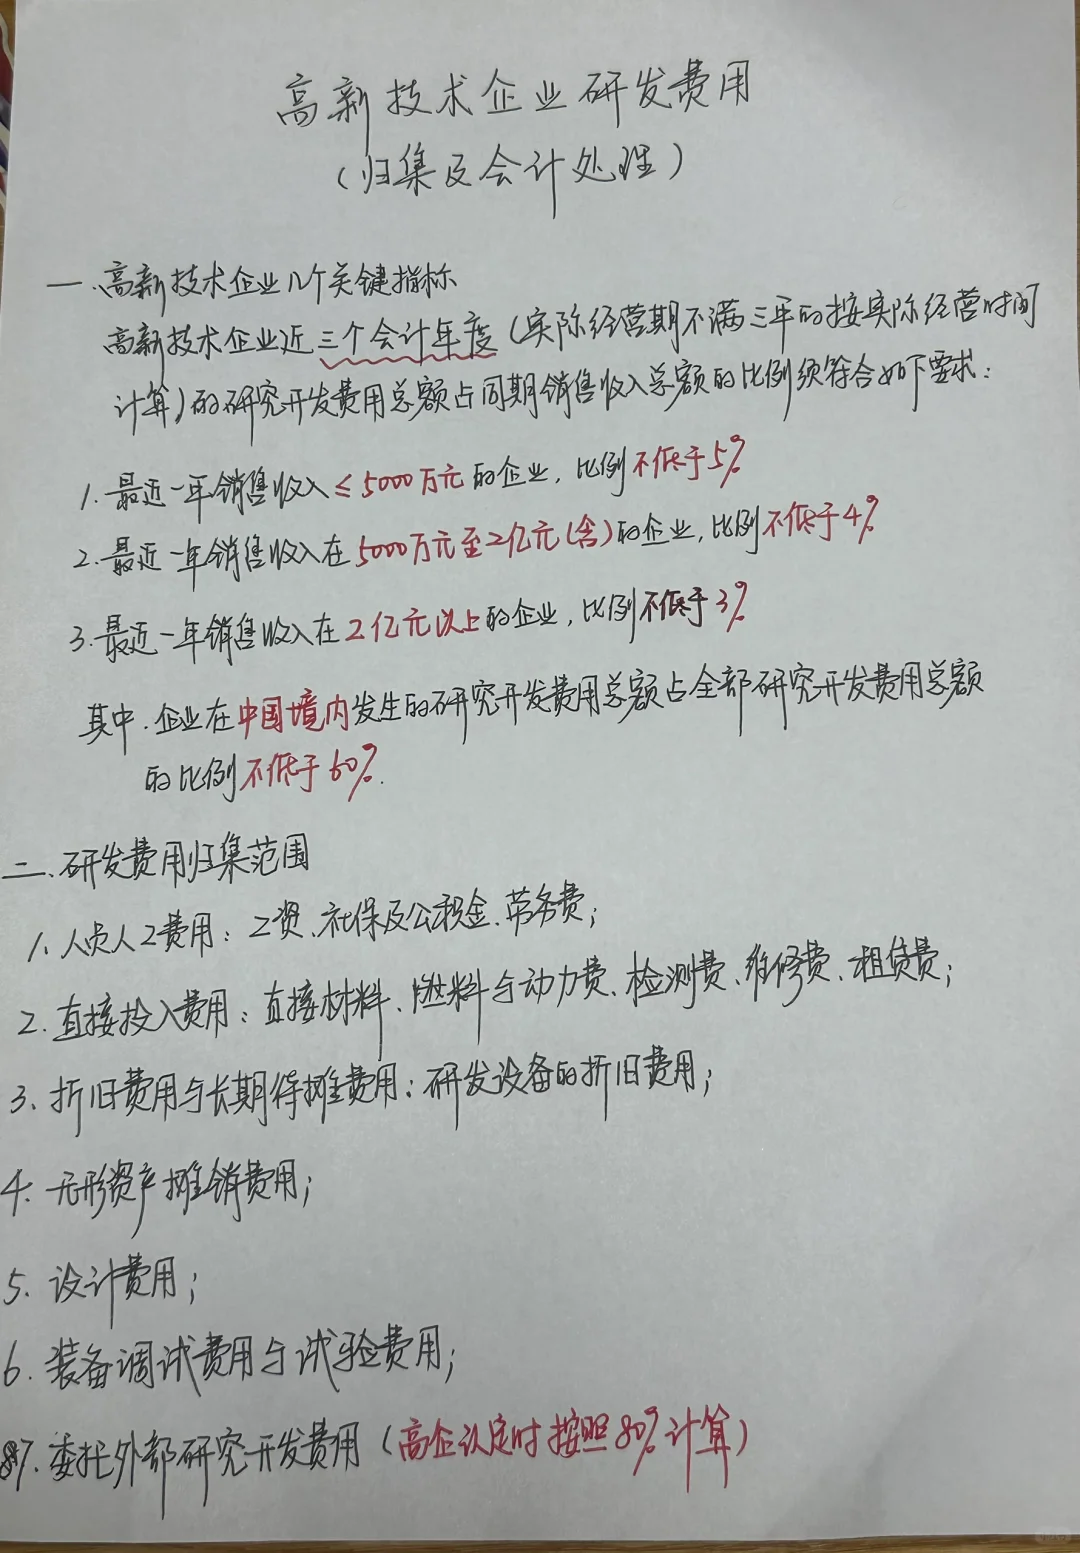 高新技术企业研发费用
（归集及会计处理）
一、高新技术企业几个关键指标
高新技术企业近三个会计年度（实际经营期不满三年的按实际经营时间
计算）的研究开发费用总额占同期销售收入总额的比例须符合如下要求：
1.最近一年销售收入≤5000万元的企业，比例不低于5%
2.最近一年销售收入在5000万元至2亿元（含）的企业，比例不低于4%
3.最近一年销售收入在2亿元以上的企业，比例不低于3%
其中.企业在中国境内发生的研究开发费用总额占全部研究开发费用总额
的比例不低于60%.
二、研发费用归集范围
1.人员人工费用：工资、社保及公积金、劳务费；
2.直接投入费用：直接材料、燃料与动力费、检测费、维修费、租赁费；
3.折旧费用与长期待摊费用：研发设备的折旧费用；
4.无形资产摊销费用；
5.设计费用；
6.装备调试费用与试验费用；
7.委托外部研究开发费用（高企认定时按照80%计算）